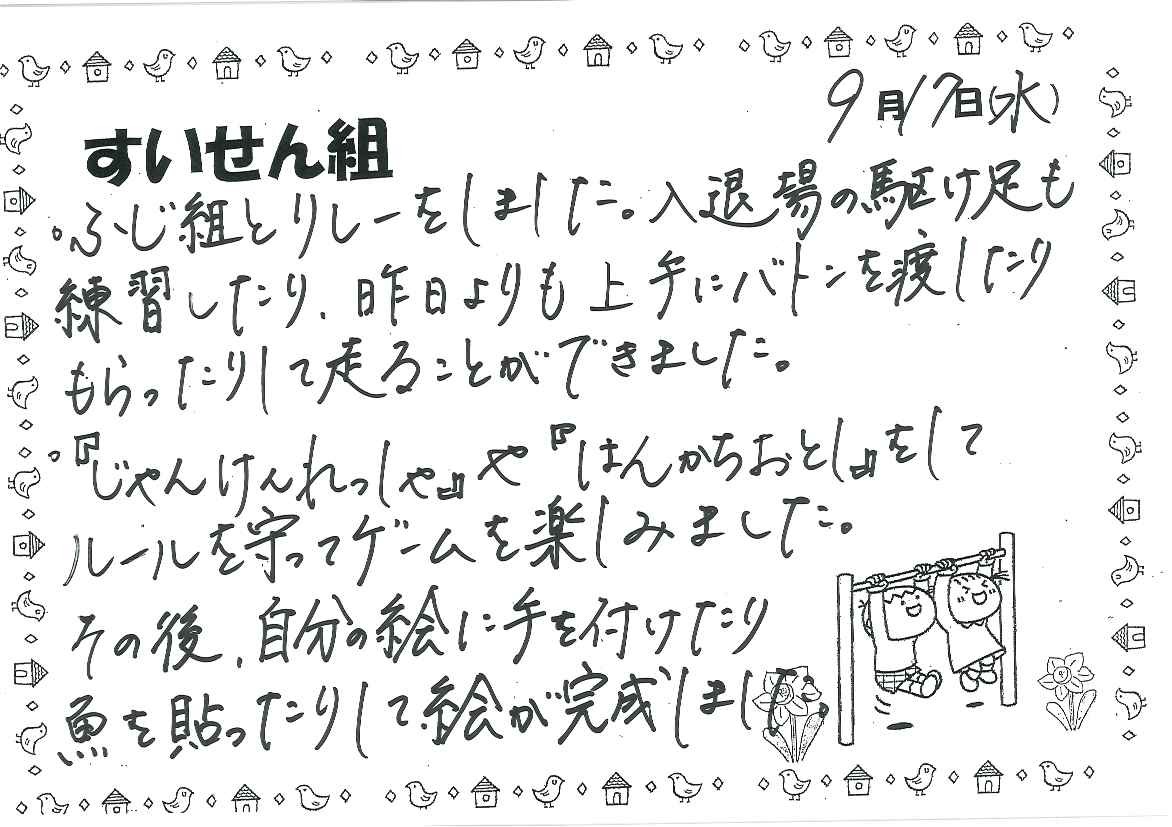 9月17日(水)
すいせん組
・ふじ組とリレーをしました。入退場の駆け足も
練習したり、昨日よりも上手にバトンを渡したり
もらったりして走ることができました。
・『じゃんけんれっしゃ』や『はんかちおとし』をして
ルールを守ってゲームを楽しみました。
その後、自分の絵に手を付けたり
魚を貼ったりして絵が完成しました。